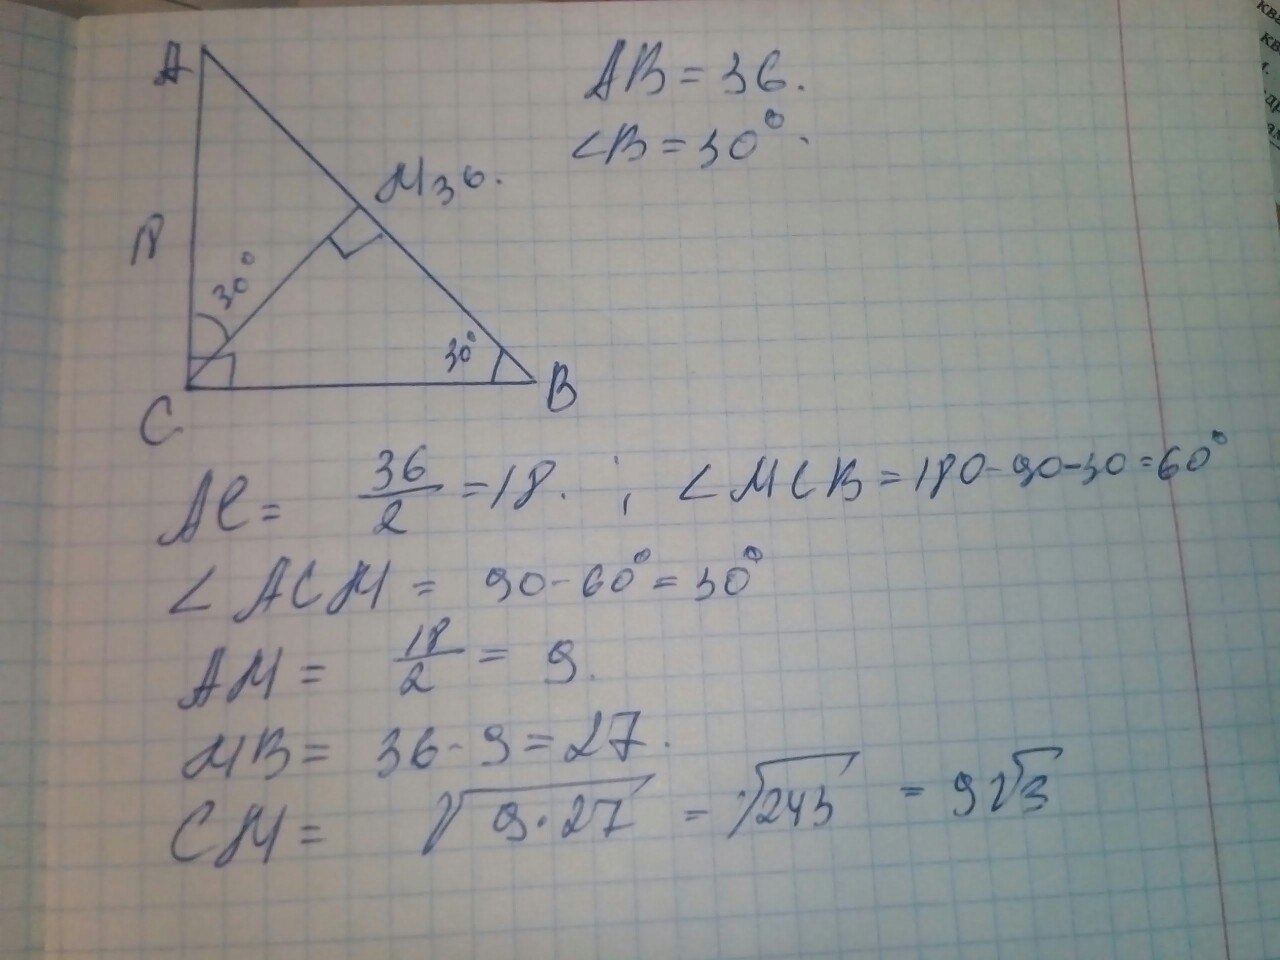 A
AB = 36.
∠B = 30°.
M 36.
18
30°
30°
C
B
AC = 36/2 = 18. ; ∠MCB = 180-90-30=60°
∠ACM = 90-60°=30°
AM = 18/2 = 9.
MB = 36-9=27.
CM = √9·27 = √243 = 9√3